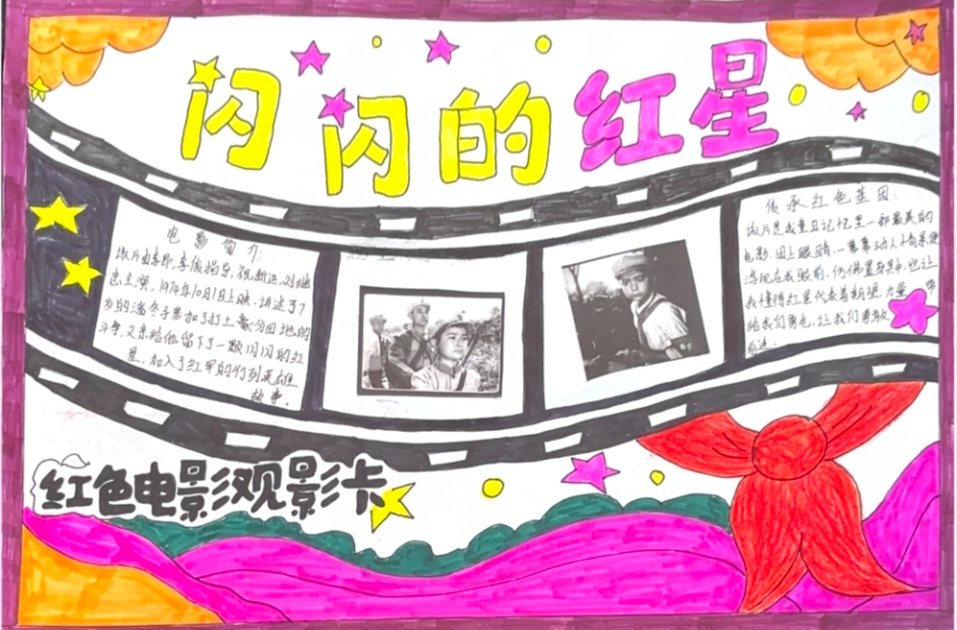 闪闪的红星
电影简介:
该片由李昂、李俊指导,祝新运、刘继
忠主演,1974年10月1日上映,讲述了7
岁的潘冬子参加了打土豪分田地的
斗争,父亲给他留下一颗闪闪的红
星,加入了红军的行列英雄
故事。
传承红色基因:
该片是我童年记忆里一部最美的
电影,闭上眼睛,一幕幕动人情景便
浮现在我眼前,仿佛置身其中,它让
我懂得红星代表着期望、力量,带
给我们勇气,让我们勇敢
前进。
红色电影观影卡